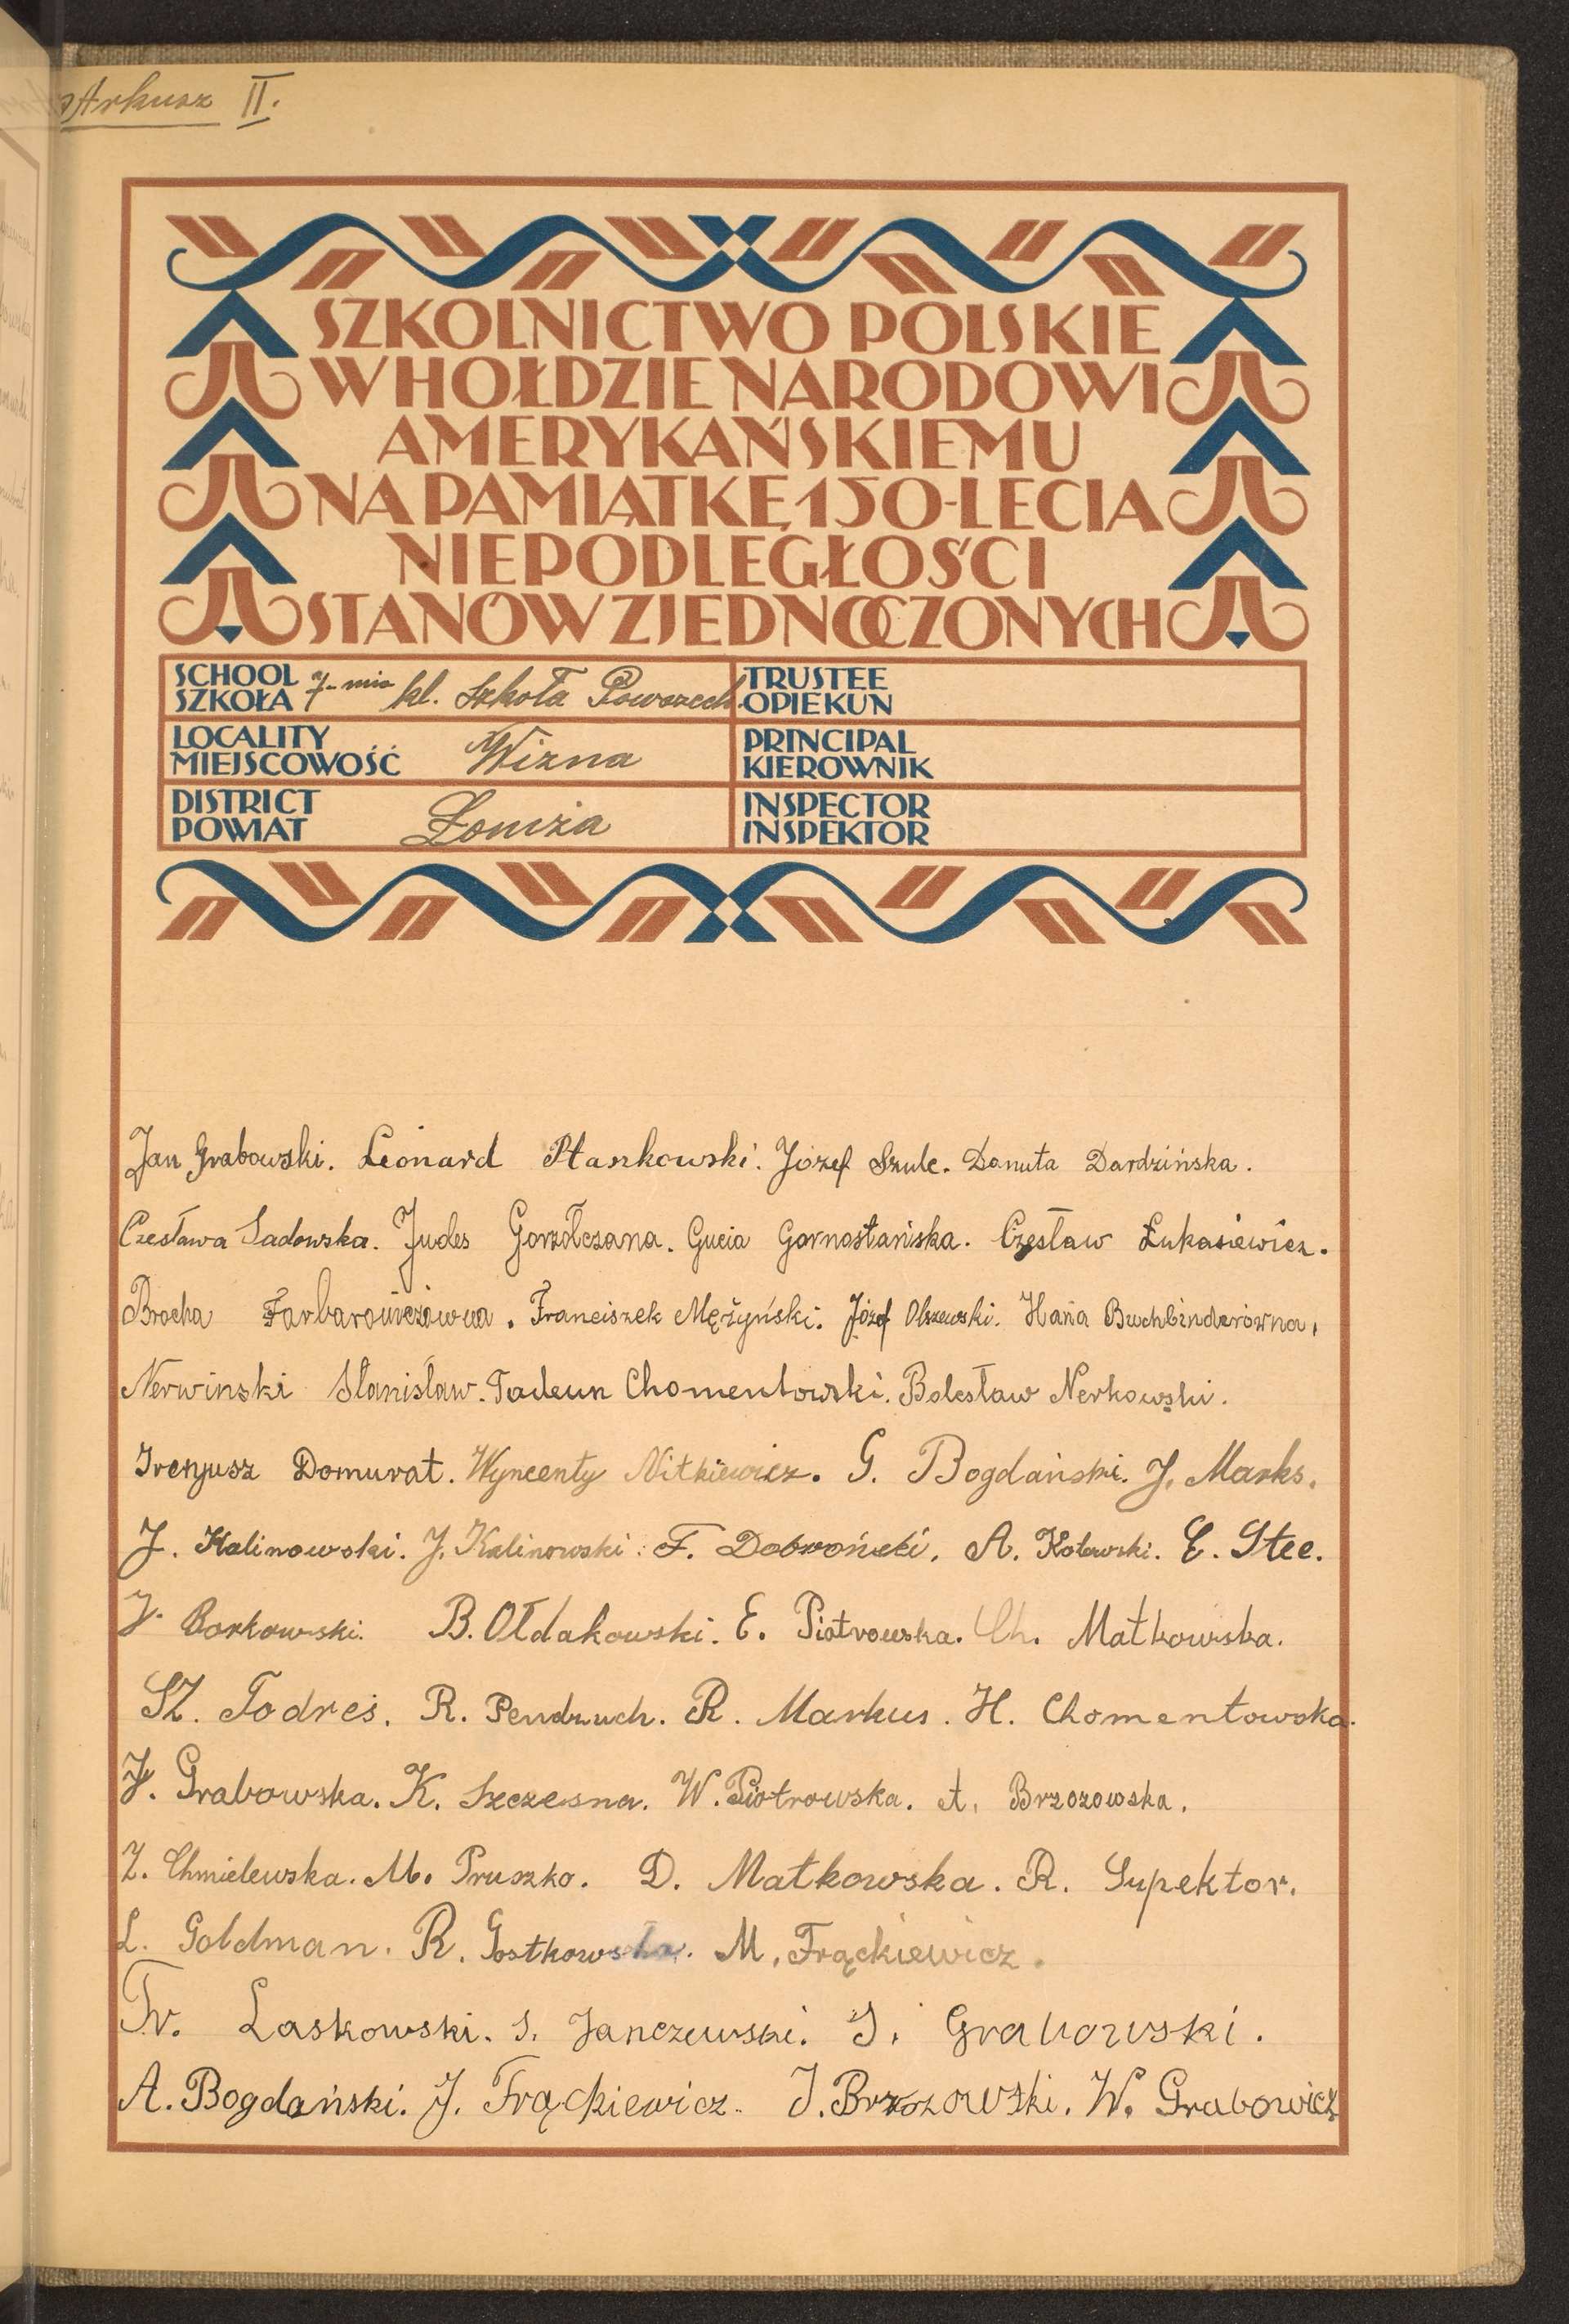 Arkusz II.
SZKOLNICTWO POLSKIE
W HOŁDZIE NARODOWI
AMERYKAŃSKIEMU
NA PAMIĄTKĘ 150-LECIA
NIEPODLEGŁOŚCI
STANÓW ZJEDNOCZONYCH
SCHOOL
SZKOŁA 7-mio kl. Szkoła Powszech.
TRUSTEE
OPIEKUN
LOCALITY
MIEJSCOWOŚĆ Wizna
PRINCIPAL
KIEROWNIK
DISTRICT
POWIAT Łomża
INSPECTOR
INSPEKTOR
Jan Grabowski. Leonard Ptaszkowski. Józef Szulc. Danuta Dardzińska.
Czesława Sadowska. Judes Gorzołczana. Gucia Gornostańska. Czesław Łukasiewicz.
Brocha Farbarowiczówna. Franciszek Mężyński. Józef Olszewski. Hana Buchbinderówna.
Nerwinski Stanisław. Tadeusz Chomentowski. Bolesław Nerkowski.
Irenjusz Domurat. Wyncenty Nitkiewicz. G. Bogdański. J. Marks.
J. Kalinowski. J. Kalinowski. F. Dobroński. A. Kotowski. E. Stee.
J. Borkowski. B. Ołdakowski. E. Piotrowska. Ch. Matkowska.
SZ. Todres. R. Pendzuch. R. Markus. H. Chomentowska.
J. Grabowska. K. Szczesna. W. Piotrowska. A. Brzozowska.
Z. Chmielewska. M. Pruszko. D. Matkowska. R. Supektor.
L. Goldman. R. Gostkowska. M. Frąckiewicz.
Fr. Laskowski. S. Janczewski. J. Grabowski.
A. Bogdański. J. Frąckiewicz. J. Brzozowski. W. Grabowicz